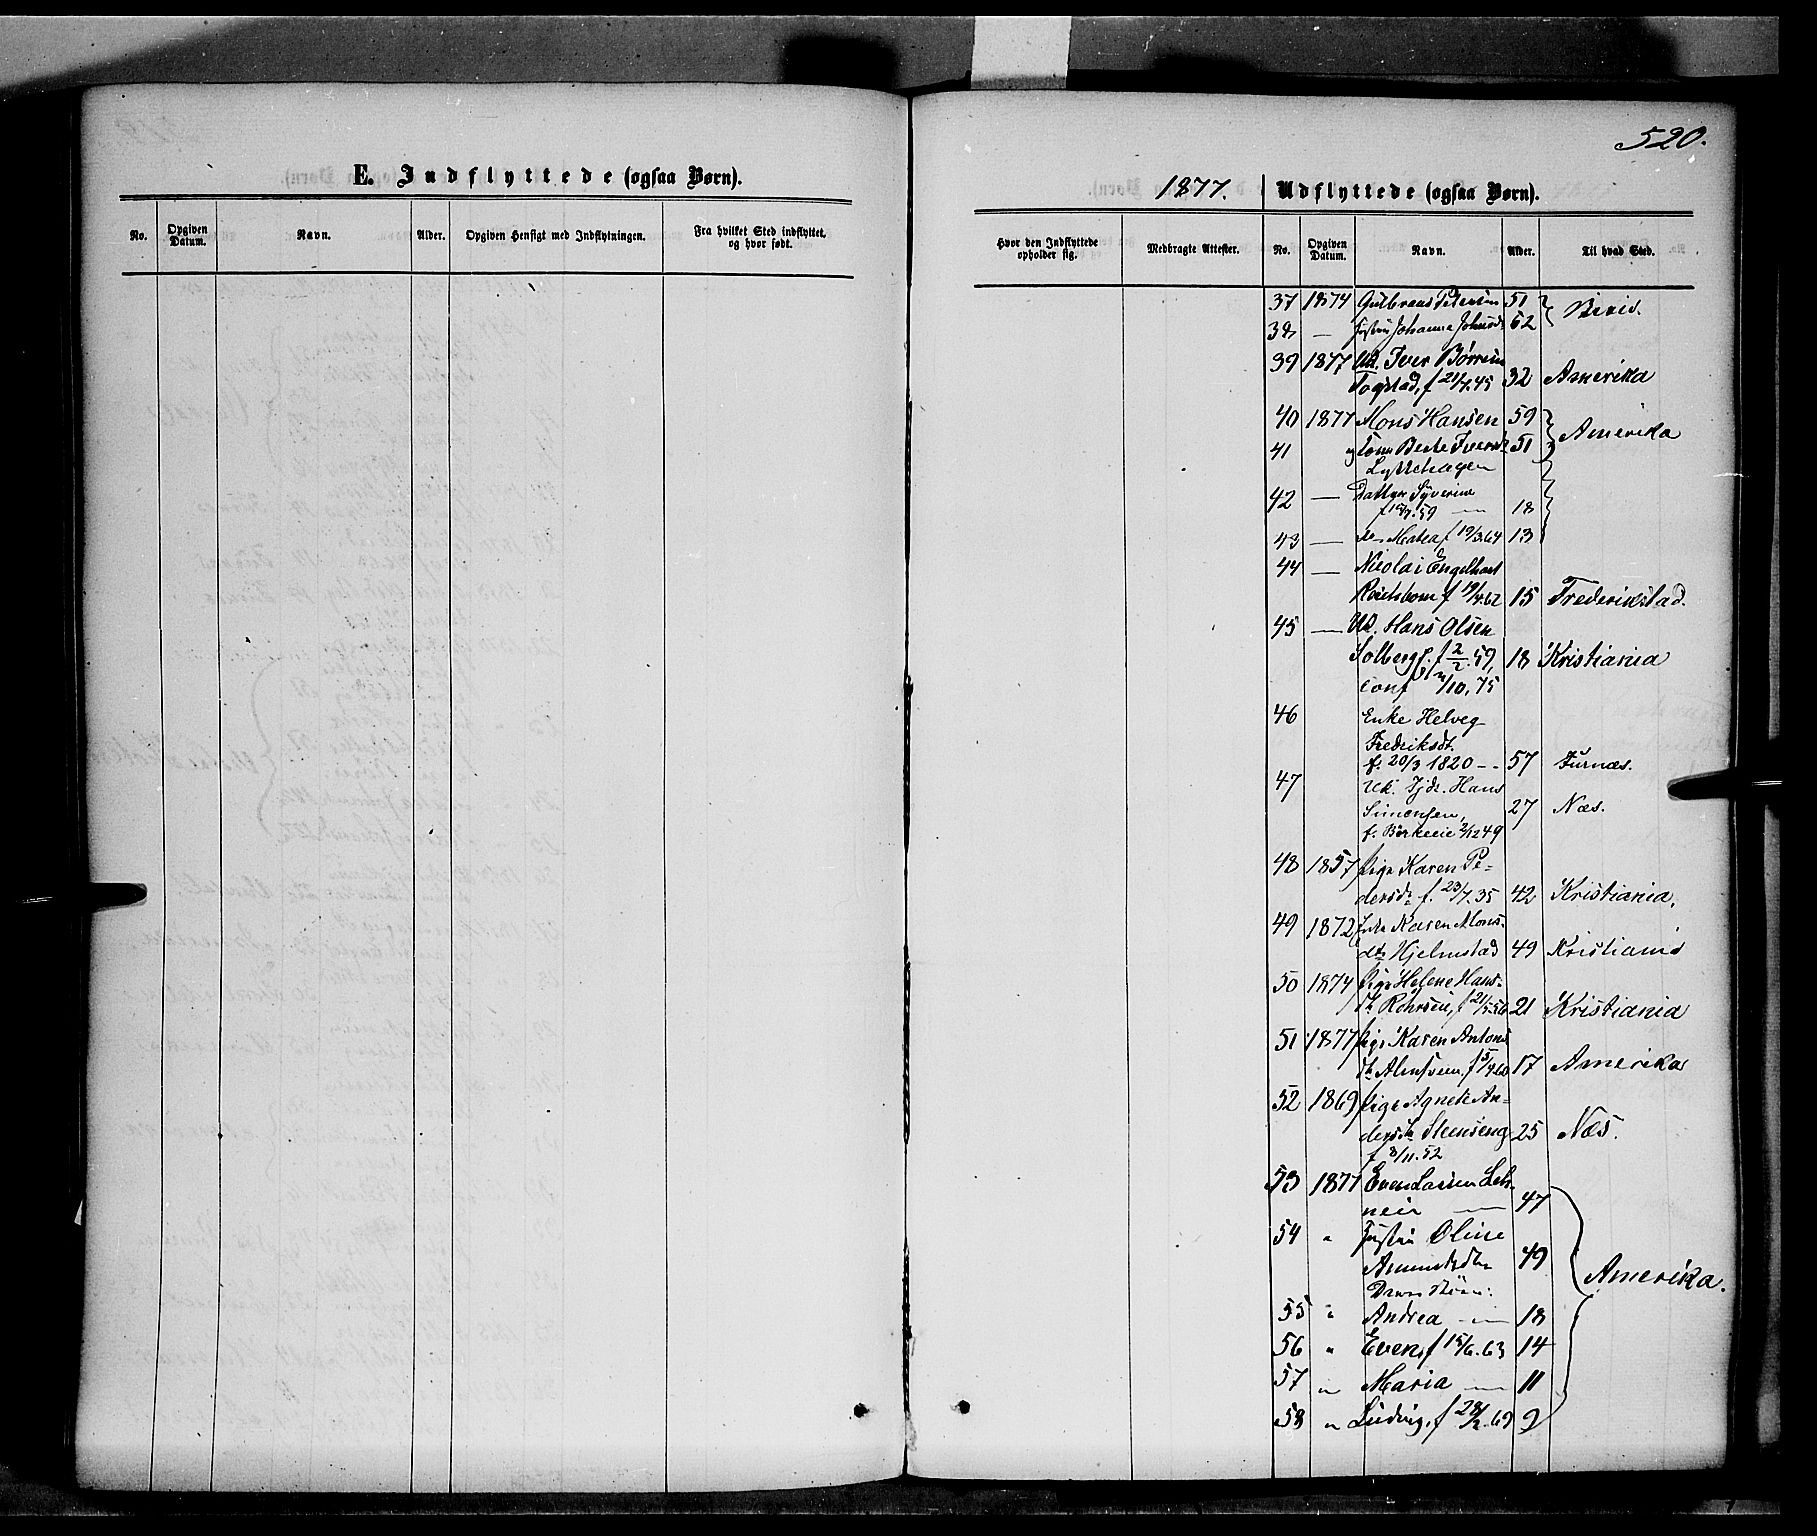 520.
E. Indflyttede (ogsaa Børn).
No. Opgiven Datum. Navn. Alder. Opgiven Hensigt med Indflytningen. Fra hvilket Sted indflyttet, og hvor født.
1877. Udflyttede (ogsaa Børn).
Hvor den Indflyttede opholder sig. Medbragte Attester. No. Opgiven Datum. Navn. Alder. Til hvad Sted.
37 1874 Gulbrand Petersen 51
38 — Johanne Johnsd. 62
39 1877 Uk. Iver Børresen
Togstad, f 21/4.45 32 Amerika
40 1877 Mons Hansen 59
Amerika
41 og Kone Berte Iversd. 51
Lykkehagen
42 — Datter Syverine
.59 — 18
43 — Do Mathea f 19/3.64 13
44 — Nicolai Engelhart
f 19/4.62 15 Frederikstad.
45 — Uk. Hans Olsen
Solberg, f 2/2.59, 18 Kristiania
conf /10,75
46 Enke Helveg
Fredriksdt.
f. 20/3 1820 -- 57 Furnæs.
47 Uk. Hans
Simensen, 27 Næs.
f. 2/12 49
48 1857 Pige Karen Pe-
dersdr f. 23/7.35 42 Kristiania.
49 1872 Karen Mons-
dtr Hjelmstad 49 Kristiania
50 1874 Pige Helene Hans-
dtr f 21/5.56 21 Kristiania
51 1877 Pige Karen Antons
dtr f 5/4.60 17 Amerika
52 1869 Pige Agnete An-
dersdtr Stenseng 25 Næs.
f 8/11.52
53 1877 Even Larsen
— 47
54 " Oline
49
Amerika.
Deres Børn:
55 " Andrea — 18
56 " Even, f 15/6.63 14
57 " Maria — 11
58 " Ludvig, f 28/2.69 9